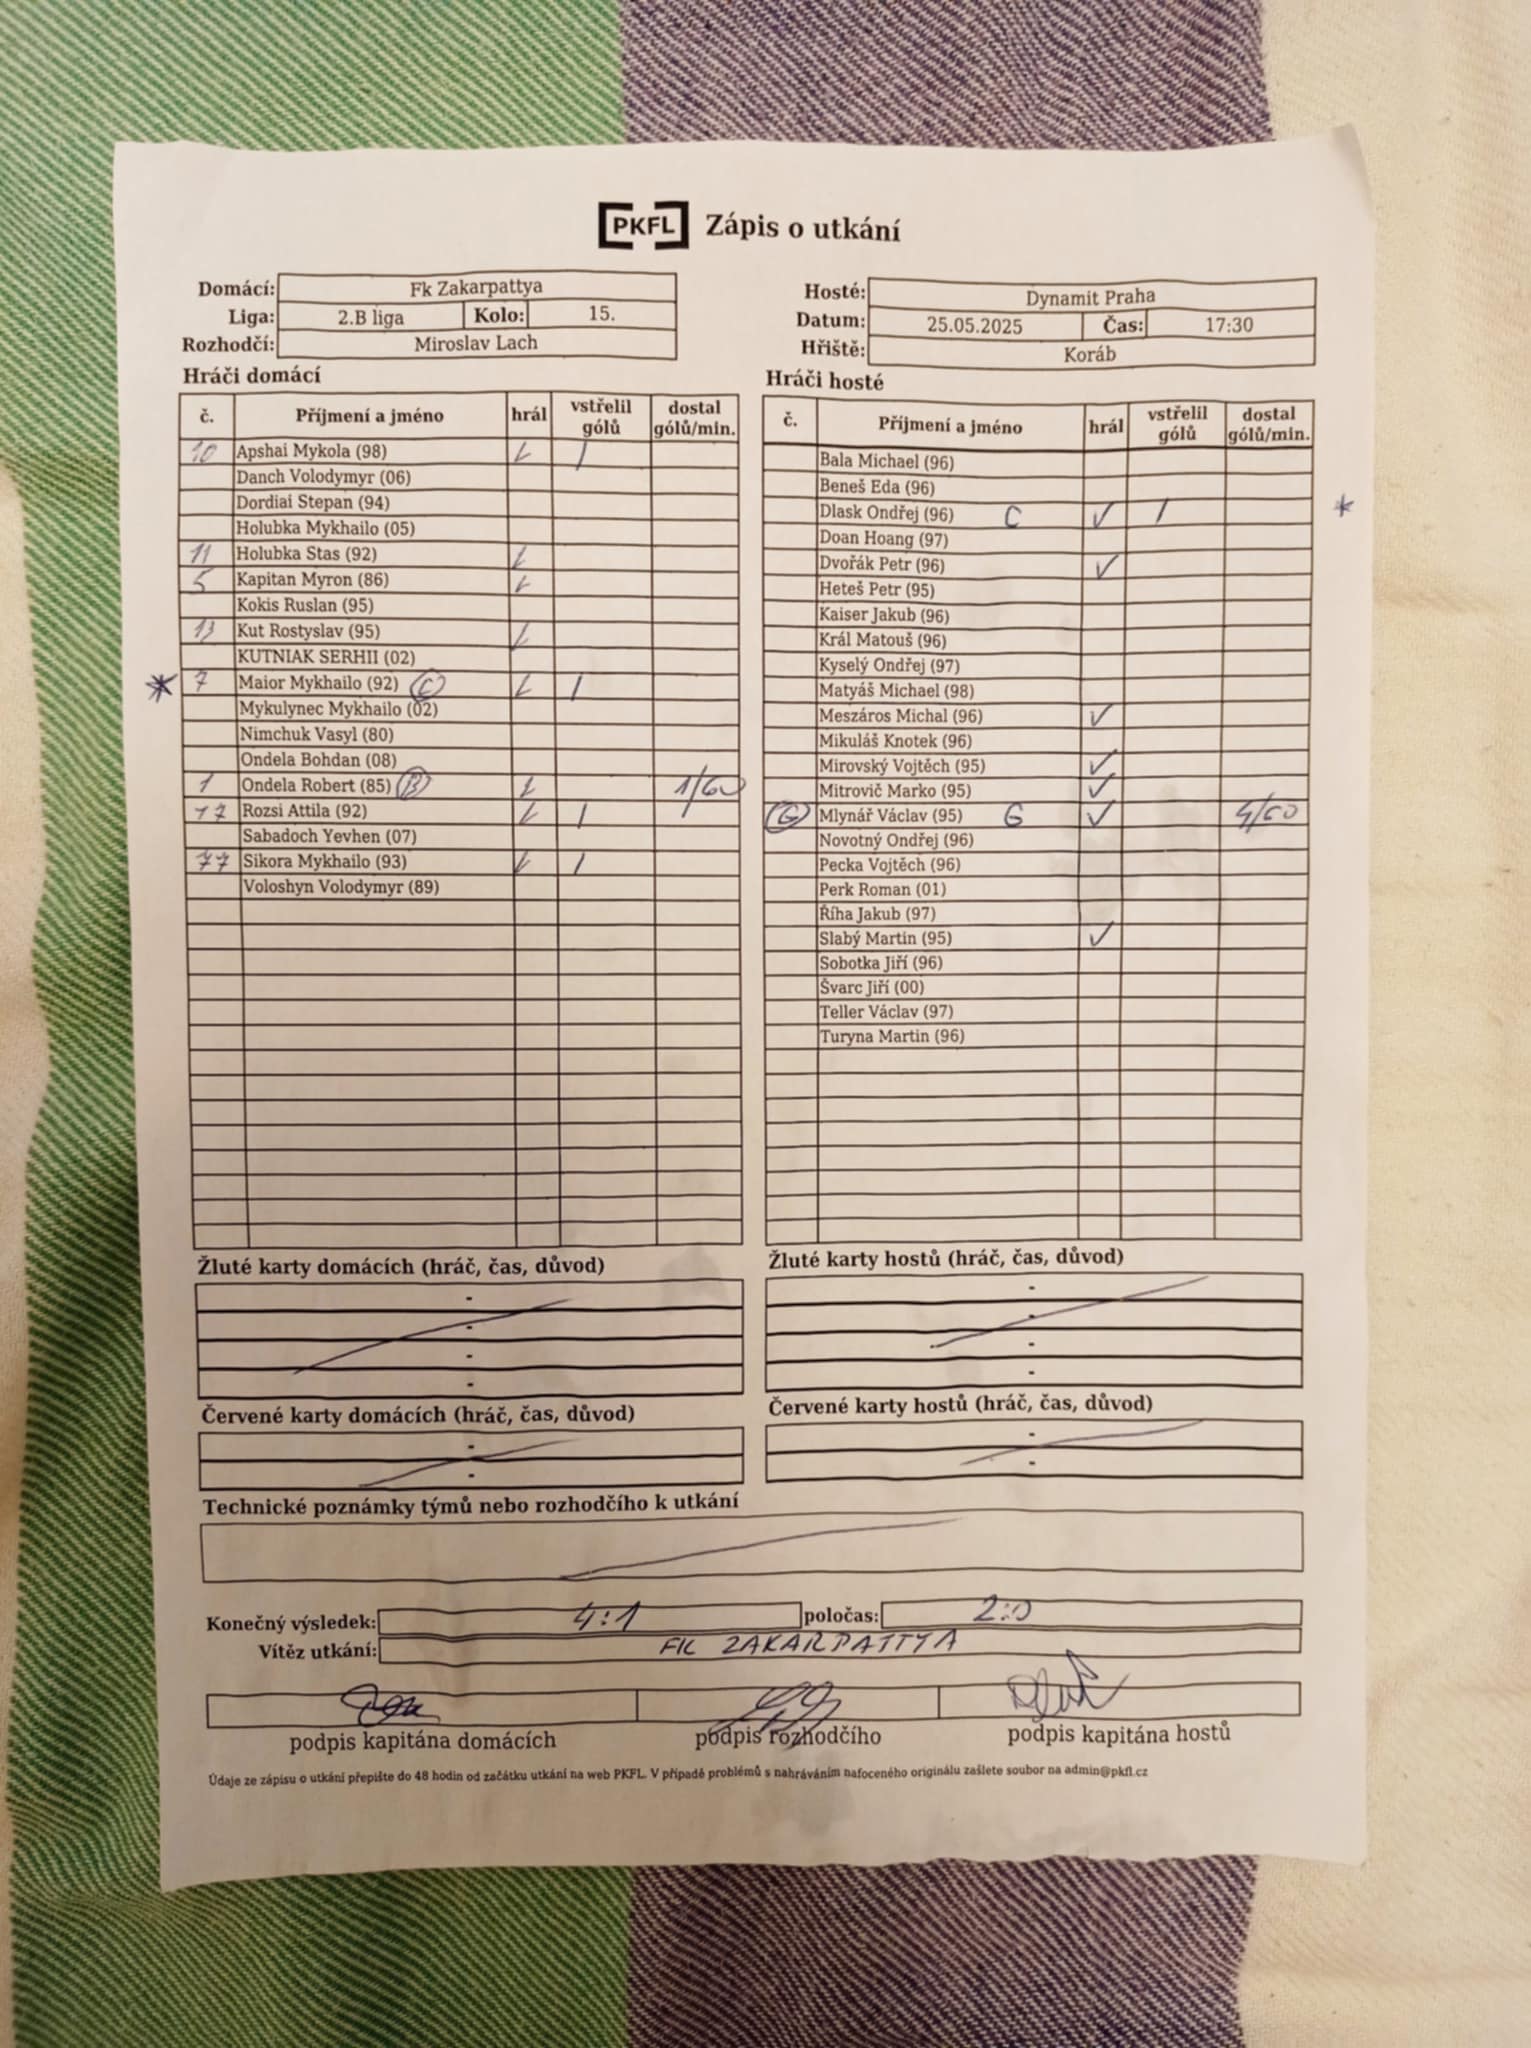 PKFL Zápis o utkání
Domácí: Fk Zakarpattya
Liga: 2.B liga Kolo: 15.
Rozhodčí: Miroslav Lach
Hosté: Dynamit Praha
Datum: 25.05.2025 Čas: 17:30
Hřiště: Koráb
Hráči domácí
č. Příjmení a jméno hrál vstřelil gólů dostal gólů/min.
10 Apshai Mykola (98) ✓ /
Danch Volodymyr (06)
Dordiai Stepan (94)
Holubka Mykhailo (05)
11 Holubka Stas (92) ✓
5 Kapitan Myron (86) ✓
Kokis Ruslan (95)
13 Kut Rostyslav (95) ✓
KUTNIAK SERHII (02)
* 7 Maior Mykhailo (92) C ✓ /
Mykulynec Mykhailo (02)
Nimchuk Vasyl (80)
Ondela Bohdan (08)
1 Ondela Robert (85) B ✓ 1/60
17 Rozsi Attila (92) ✓ /
Sabadoch Yevhen (07)
77 Sikora Mykhailo (93) ✓ /
Voloshyn Volodymyr (89)
Hráči hosté
č. Příjmení a jméno hrál vstřelil gólů dostal gólů/min.
Bala Michael (96)
Beneš Eda (96)
Dlask Ondřej (96) C ✓ / *
Doan Hoang (97)
Dvořák Petr (96) ✓
Heteš Petr (95)
Kaiser Jakub (96)
Král Matouš (96)
Kyselý Ondřej (97)
Matyáš Michael (98)
Meszáros Michal (96) ✓
Mikuláš Knotek (96)
Mirovský Vojtěch (95) ✓
Mitrovič Marko (95) ✓
G Mlynář Václav (95) G ✓ 4/60
Novotný Ondřej (96)
Pecka Vojtěch (96)
Perk Roman (01)
Říha Jakub (97)
Slabý Martin (95) ✓
Sobotka Jiří (96)
Švarc Jiří (00)
Teller Václav (97)
Turyna Martin (96)
Žluté karty domácích (hráč, čas, důvod)
-
-
-
-
Žluté karty hostů (hráč, čas, důvod)
-
-
-
-
Červené karty domácích (hráč, čas, důvod)
-
-
Červené karty hostů (hráč, čas, důvod)
-
-
Technické poznámky týmů nebo rozhodčího k utkání
Konečný výsledek: 4:1 poločas: 2:0
Vítěz utkání: FK ZAKARPATTYA
podpis kapitána domácích podpis rozhodčího podpis kapitána hostů
Údaje ze zápisu o utkání přepište do 48 hodin od začátku utkání na web PKFL. V případě problémů s nahráváním nafoceného originálu zašlete soubor na admin@pkfl.cz